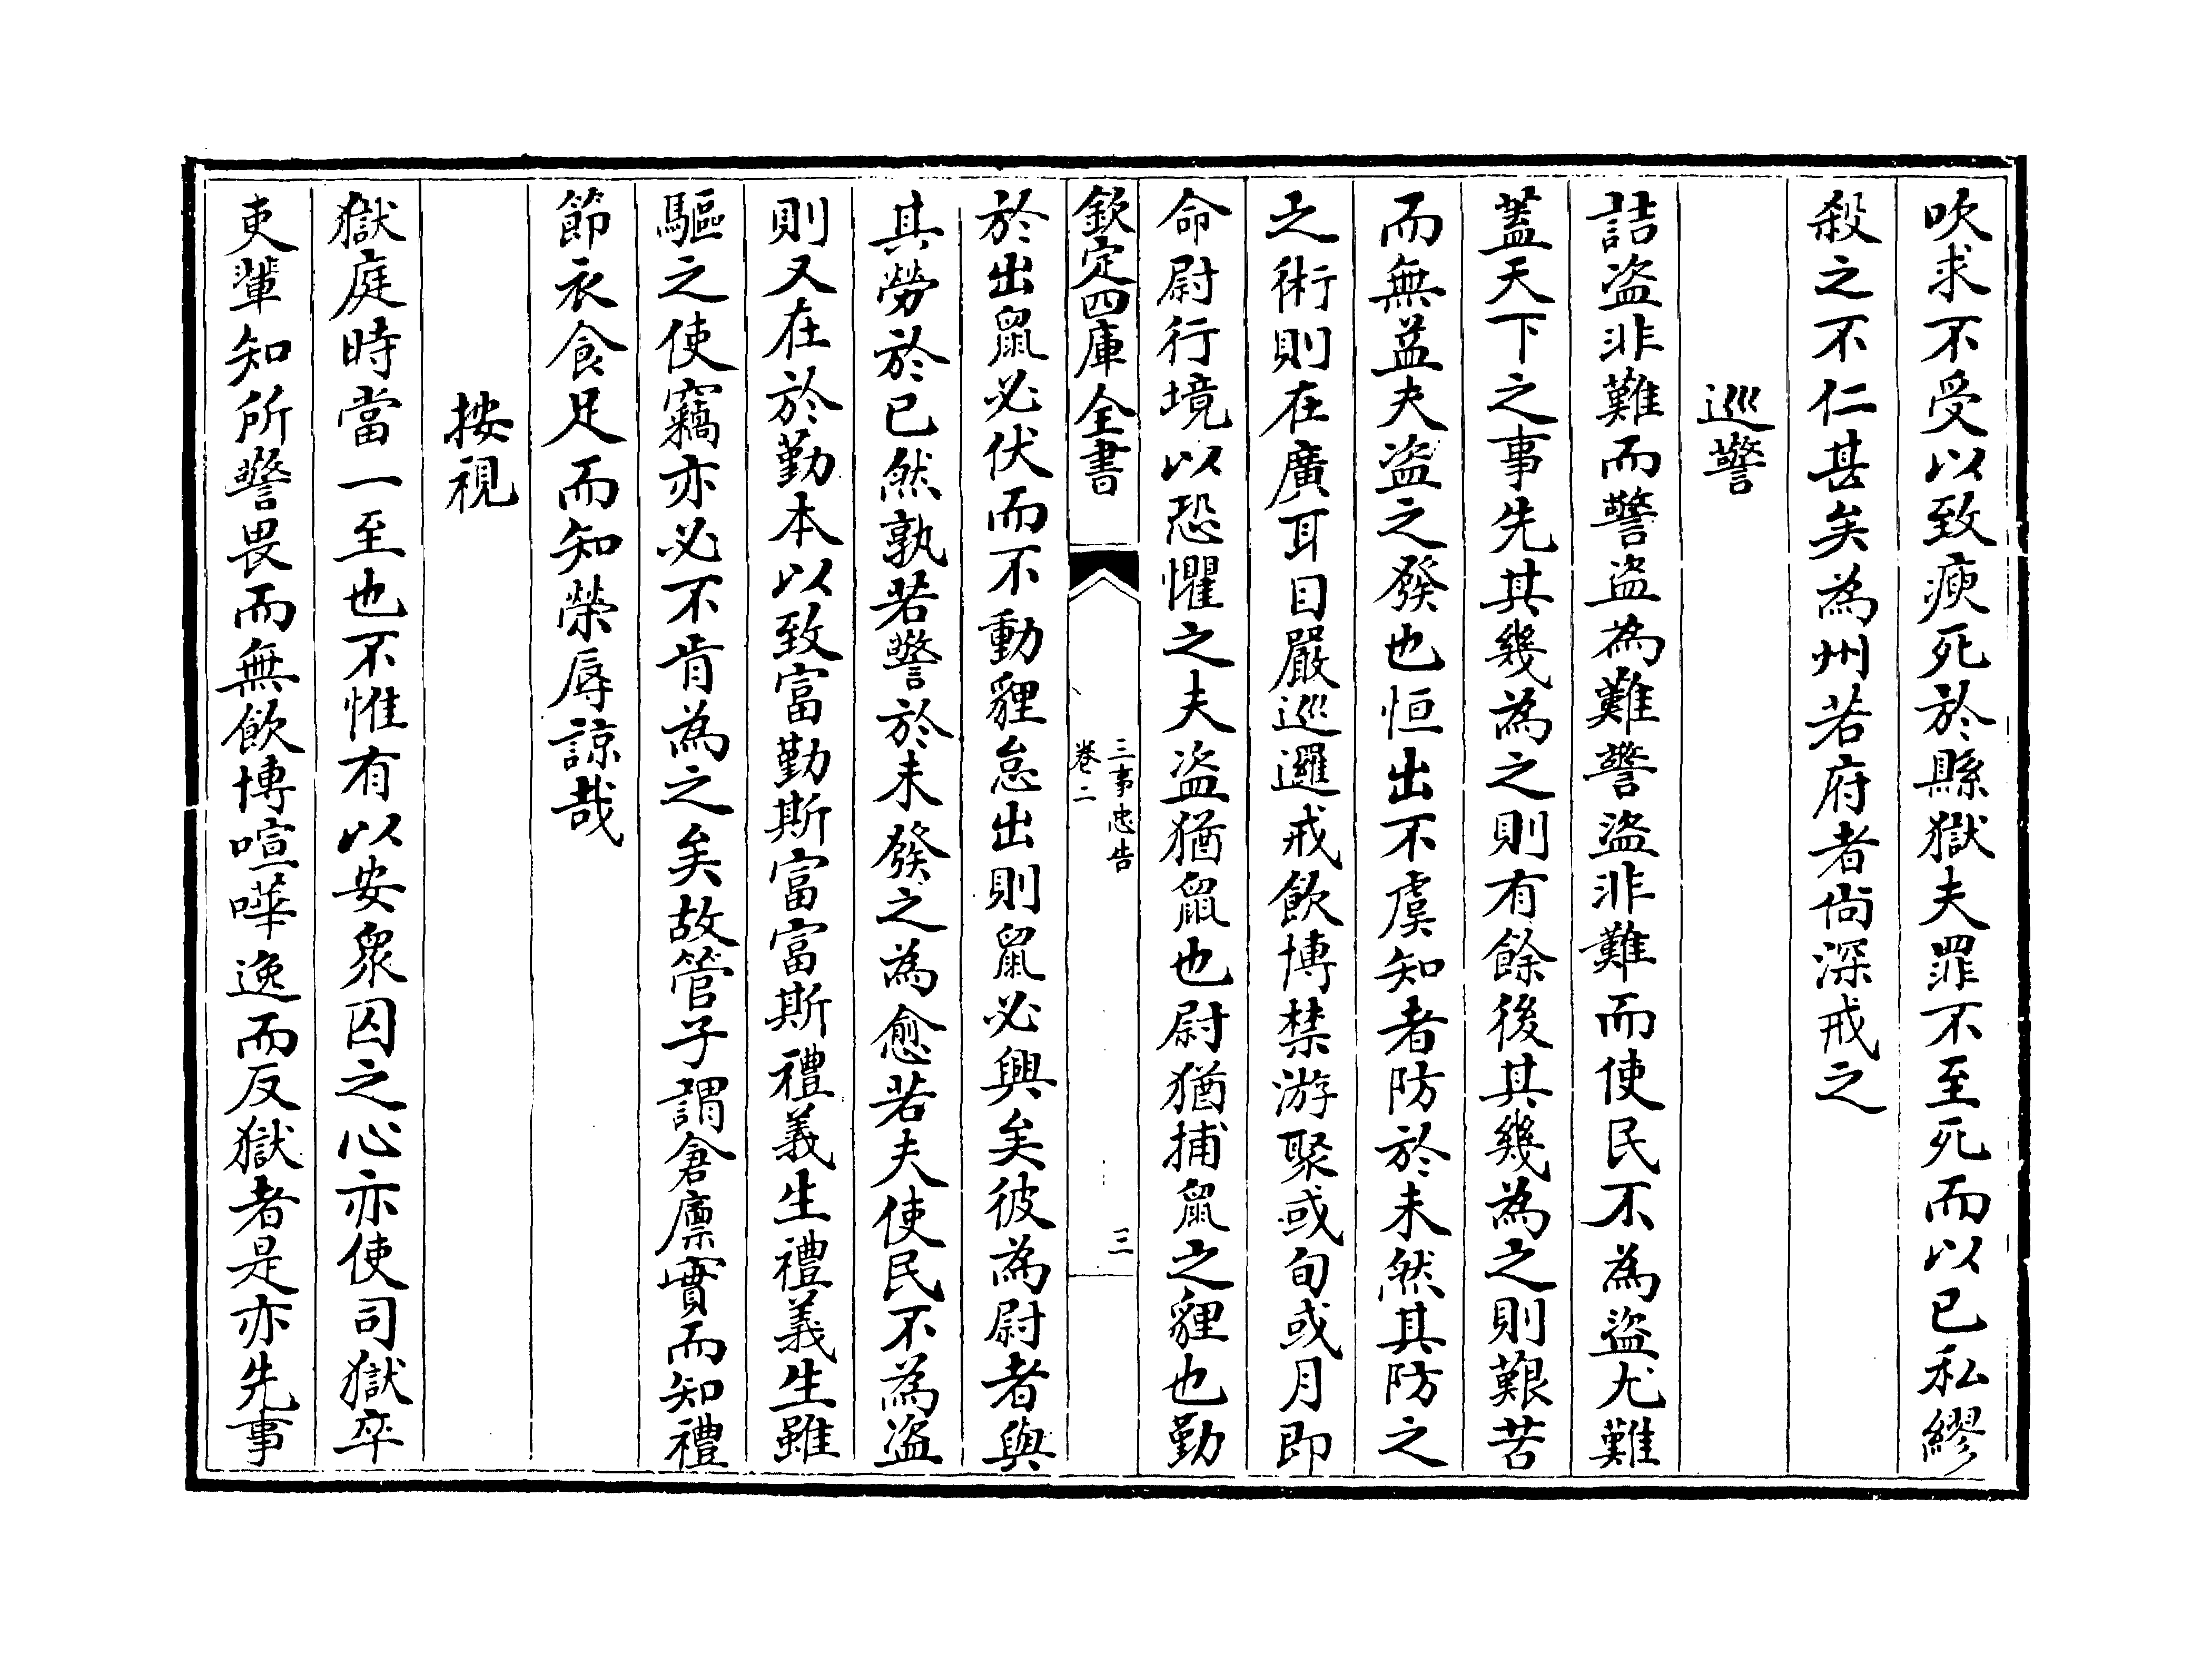 吹求不受以致瘐死於縣獄夫罪不至死而以已私繆
殺之不仁甚矣為州若府者尚深戒之
巡警
詰盗非難而警盗為難警盗非難而使民不為盗尤難
蓋天下之事先其幾為之則有餘後其幾為之則艱苦
而無益夫盗之發也恒出不虞知者防於未然其防之
之術則在廣耳目嚴巡邏戒飲博禁游聚或旬或月即
命尉行境以恐懼之夫盗猶鼠也尉猶捕鼠之貍也勤
欽定四庫全書
三事忠告
卷二
三
於出鼠必伏而不動貍怠出則鼠必興矣彼為尉者與
其勞於已然孰若警於未發之為愈若夫使民不為盗
則又在於勤本以致富勤斯富富斯禮義生禮義生雖
驅之使竊亦必不肯為之矣故管子謂倉廩實而知禮
節衣食足而知榮辱諒哉
按視
獄庭時當一至也不惟有以安衆囚之心亦使司獄卒
吏輩知所警畏而無飲博喧嘩逸而反獄者是亦先事